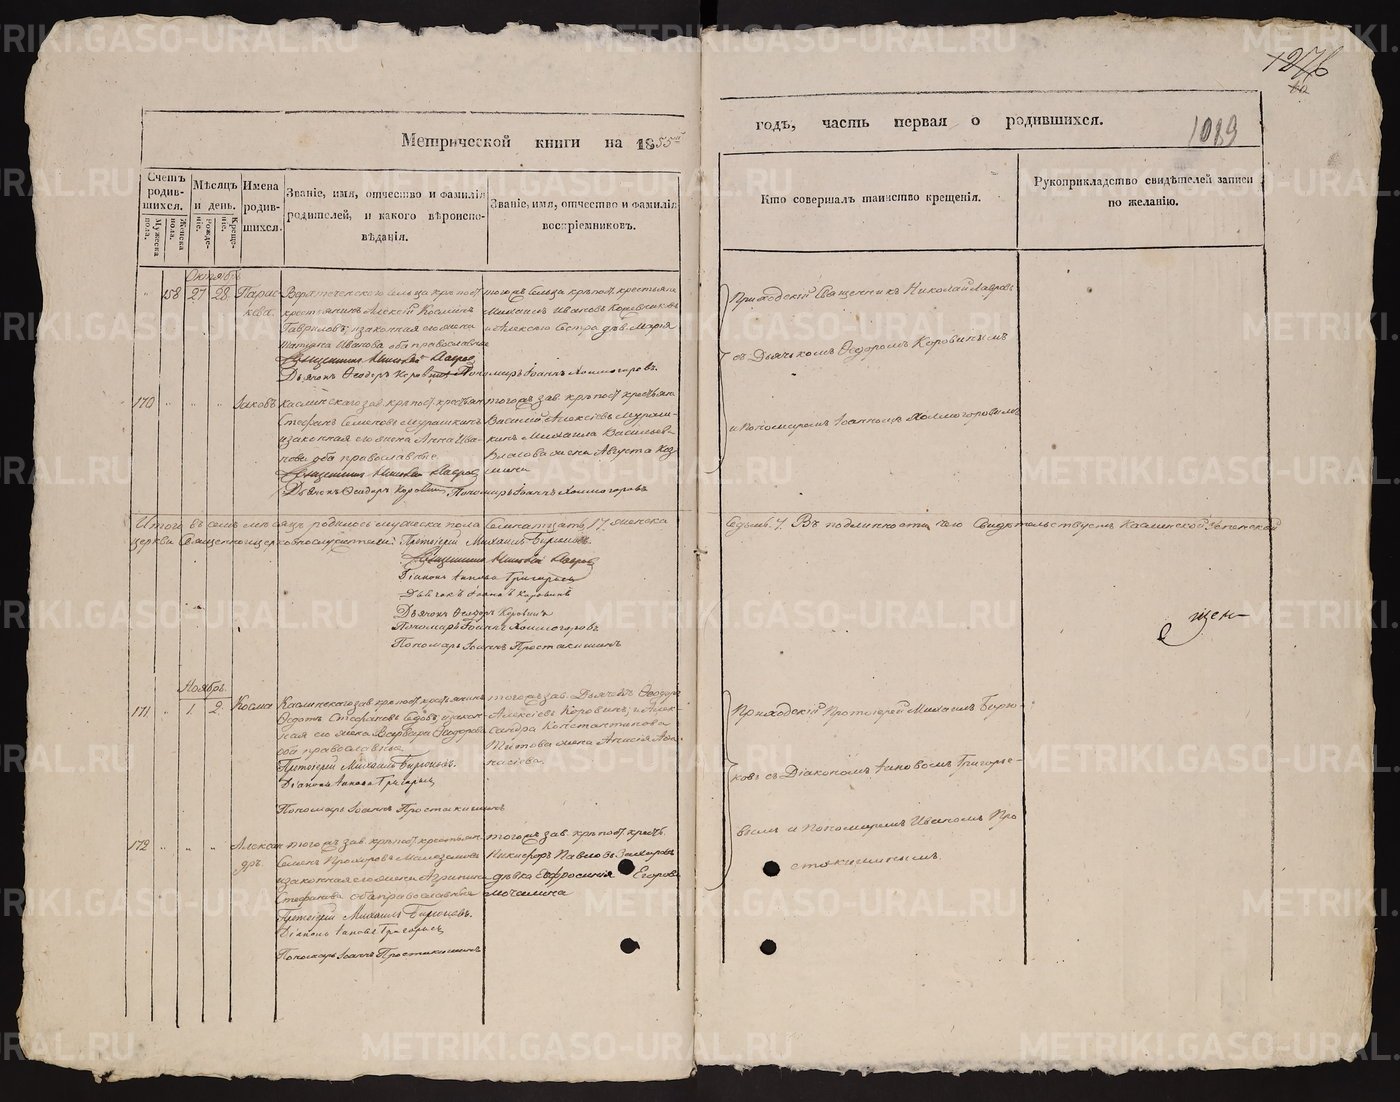 METRIKI.GASO-URAL.RU
1276
Метрической книги на 1855й
годъ, часть первая о родившихся.
1089
Счетъ родив-шихся.
Мужеска пола.
Женска пола.
Мѣсяцъ и день.
Рожде-ніе.
Креще-ніе.
Имена родив-шихся.
Званіе, имя, отчество и фамилія родителей, и какого вѣроиспо-вѣданія.
Званіе, имя, отчество и фамилія воспріемниковъ.
Кто совершалъ таинство крещенія.
Рукоприкладство свидѣтелей записи по желанію.
Октябрь
158 27 28 Парас-
кева
крестьянинъ Алексій Косминъ
Гавриловъ, и законная его жена
Татьяна Иванова оба православные
Священникъ Николай Лавровъ
Дьячекъ Ѳеодоръ Коровинъ Пономарь Іоаннъ Холмогоровъ.
тогожъ сельца крѣпост крестьянинъ
Михаилъ Ивановъ
и Алексѣю сестра дѣв. Марія
Приходскій Священникъ Николай Лавровъ
съ Дьячкомъ Ѳеодоромъ Коровинымъ
и Пономаремъ Іоанномъ Холмогоровымъ
170 Іаковъ
Каслинскаго зав. крѣпост крестьян
Стефанъ Семеновъ Мурашкинъ
и законная его жена Анна Ива-
нова оба православные.
Священникъ Николай Лавровъ
Дьячекъ Ѳеодоръ Коровинъ, Пономарь Іоаннъ Холмогоровъ
тогожъ зав. крѣпост крестьян
Василій Алексѣевъ Мураш-
кинъ и Михаила Васильева
Власова жена Августа Коз
мина
Итого въ семъ мѣсяцѣ родилось мужеска пола семнатцать, 17. женска
седьмь 7. Въ подлинности чего свидѣтельствуетъ Каслинской Успенской
церкви Священноицерковнослужители: Протоіерей Михаилъ Бирюковъ.
Священникъ Николай Лавровъ
Діаконъ Іаковъ Григорьевъ
Дьячекъ Іоаннъ Коровинъ
Дьячекъ Ѳеодоръ Коровинъ
Пономарь Іоаннъ Холмогоровъ
Пономарь Іоаннъ Простакишинъ
щен
Ноябрь.
171 1. 2. Косма
Каслинскаго зав. крѣпост крестьянинъ
Ѳедотъ Стефановъ Седовъ, и закон-
ная его жена Варвара Ѳеодорова
оба православные
Протоіерей Михаилъ Бирюковъ.
Діаконъ Іаковъ Григорьевъ
Пономарь Іоаннъ Простакишинъ
тогожъ зав. Дьячекъ Ѳеодоръ
Алексѣевъ Коровинъ, и Алек
сандра Константинова
Титова жена Анисія Аѳа-
насіева.
Приходскій Протоіерей Михаилъ Бирю-
ковъ съ Діакономъ Іаковомъ Григорье-
вымъ и Пономаремъ Иваномъ Про
стакишинымъ.
172 Алексан
дръ.
тогожъ зав. крѣпост крестьян.
Семенъ Прохоровъ
и законная его жена Агрипина
Стефанова оба православные
Протоіерей Михаилъ Бирюковъ.
Діаконъ Іаковъ Григорьевъ
Пономарь Іоаннъ Простакишинъ
тогожъ зав. крѣпост крест.
Никифоръ Павловъ Захаровъ
дѣвка Евфросинія Егорова
Мочалина